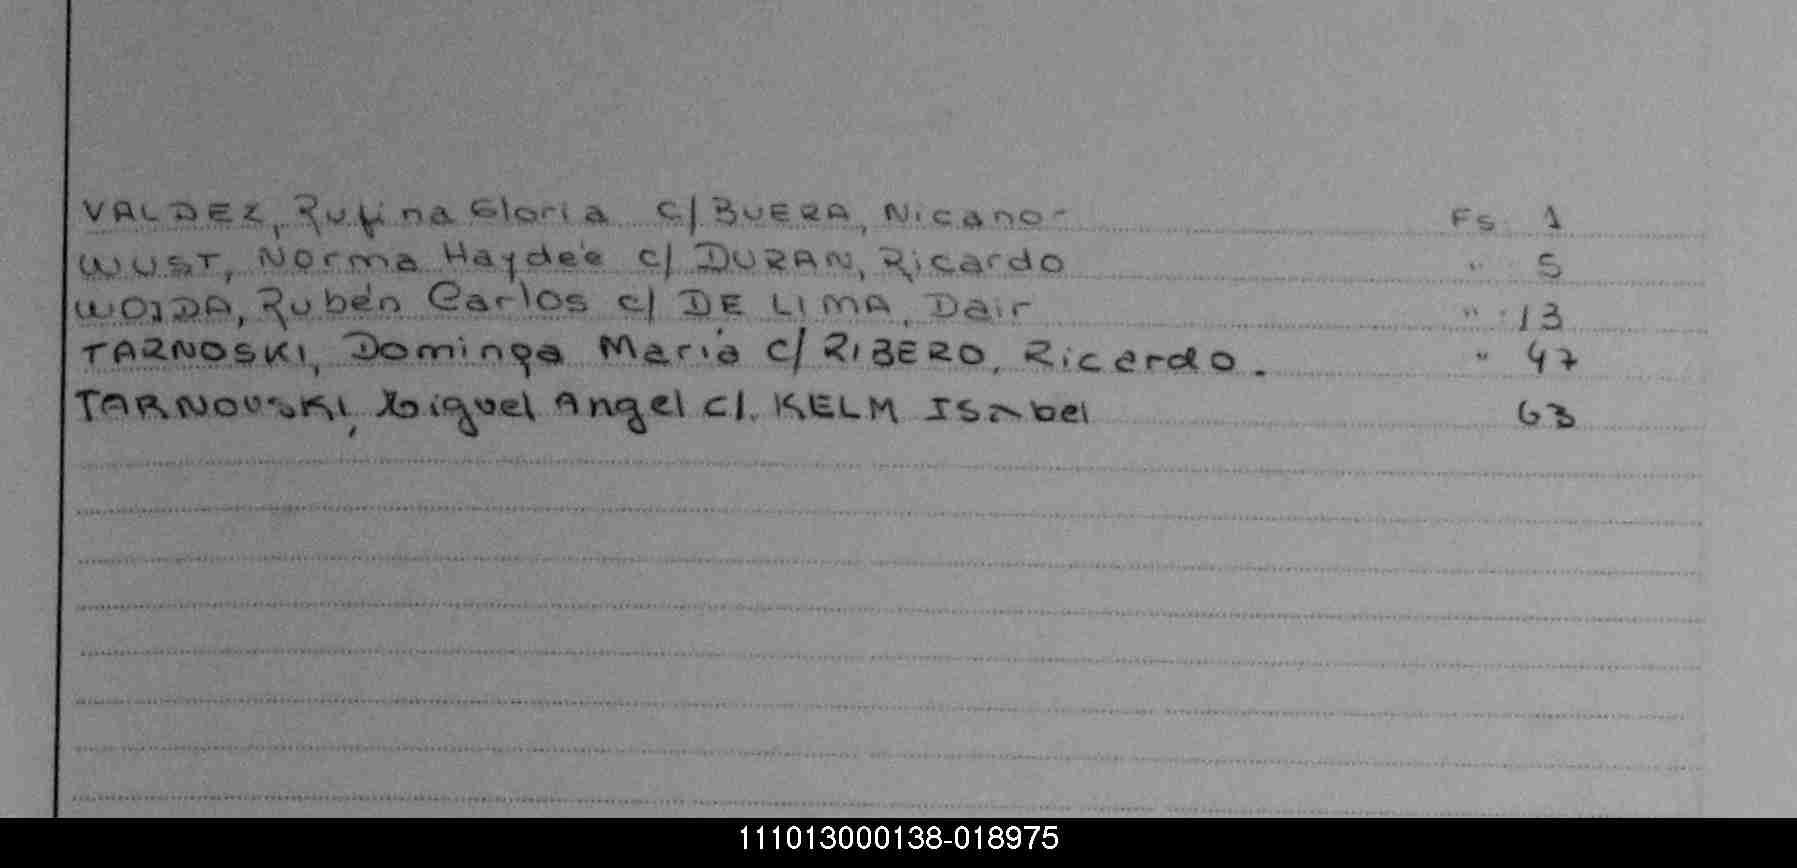 VALDEZ, Rufina Gloria c/ BUERA, Nicanor Fs. 1
WUST, Norma Haydeé c/ DURAN, Ricardo " 5
WOJDA, Rubén Carlos c/ DE LIMA, Dair " 13
TARNOSKI, Dominga Maria c/ RIBERO, Ricardo. " 47
TARNOVSKI, Miguel Angel c/. KELM ISabel 63
111013000138-018975